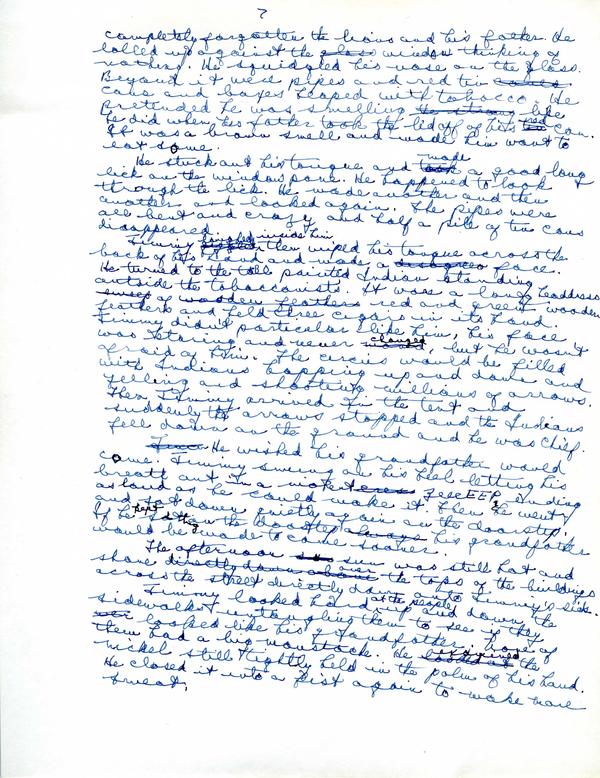 7
completely forgotten the lions and his father. He
lolled up against the glass window thinking of
nothing. He squiggled his nose on the glass.
Beyond it were pipes and red tin
cans and boxes heaped with tobacco. He
pretended he was smelling the strong like
he did when his father took the lid off of his red can.
It was a brown smell and made him want to
eat some.
He stuck out his tongue and took made a good long
lick on the windowpane. He happened to look
through the lick. He made another and then
another and looked again. The pipes were
all bent and crazy and half a pile of tin cans
disappeared.
Jimmy giggled inside him then wiped his tongue across the
back of his hand and made a face.
He turned to the tall painted Indian standing
outside the tobacconists. It was a long headdress
of wooden feathers red and green wooden
feathers and held three cigars in its hand.
Jimmy didn't particular like him, his face
was staring and never changed, but he wasn't
afraid of him. The circus would be filled
with Indians bopping up and down and
yelling and shooting millions of arrows.
Then Jimmy arrived in the tent and
suddenly the arrows stopped and the Indians
fell down on the ground and he was chief.
He wished his grandfather would
come. Jimmy swung on his heel letting his
breath out in a EEP, ending
as loud as he could make it. Then he went
and sat down quietly again on the doorstep.
If he kept sitting on the doorstep always his grandfather
would be made to come sooner.
The afternoon sun was still hot and
shone directly down above the tops of the buildings
across the street directly down onto Jimmy's side.
Jimmy looked hard at the people up and down the
sidewalk untangling them to see if they
looked like his grandfather, none of
them had a big moustache. He looked at the
nickel still tightly held in the palm of his hand.
He closed it into a fist again to make more
sweat.